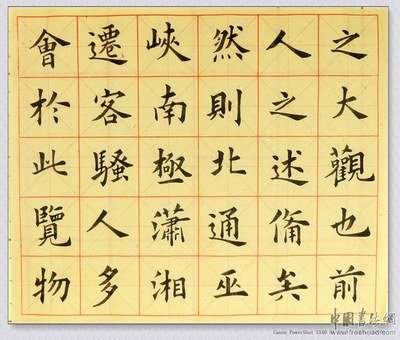 之大觀也前
人之述俻矣
然則北通巫
峽南極瀟湘
遷客騷人多
會於此覽物
中國書法網
Canon PowerShot